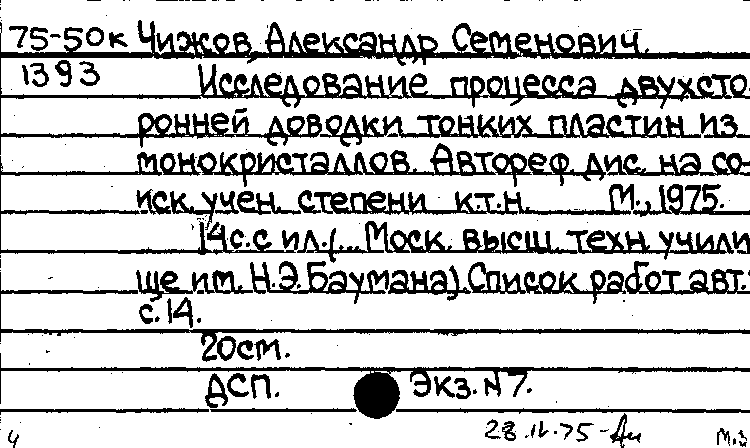 75-50к Чижов, Александр Семенович.
1393 Исследование процесса двухсто-
ронней доводки тонких пластин из
монокристаллов. Автореф. дис. на со-
иск. учен. степени к.т.н. М., 1975.
14с. с ил. (... Моск. высш. техн. учили-
ще им. Н.Э.Баумана). Список работ авт.:
с.14.
20см.
ДСП. Экз. N 7.
4 75